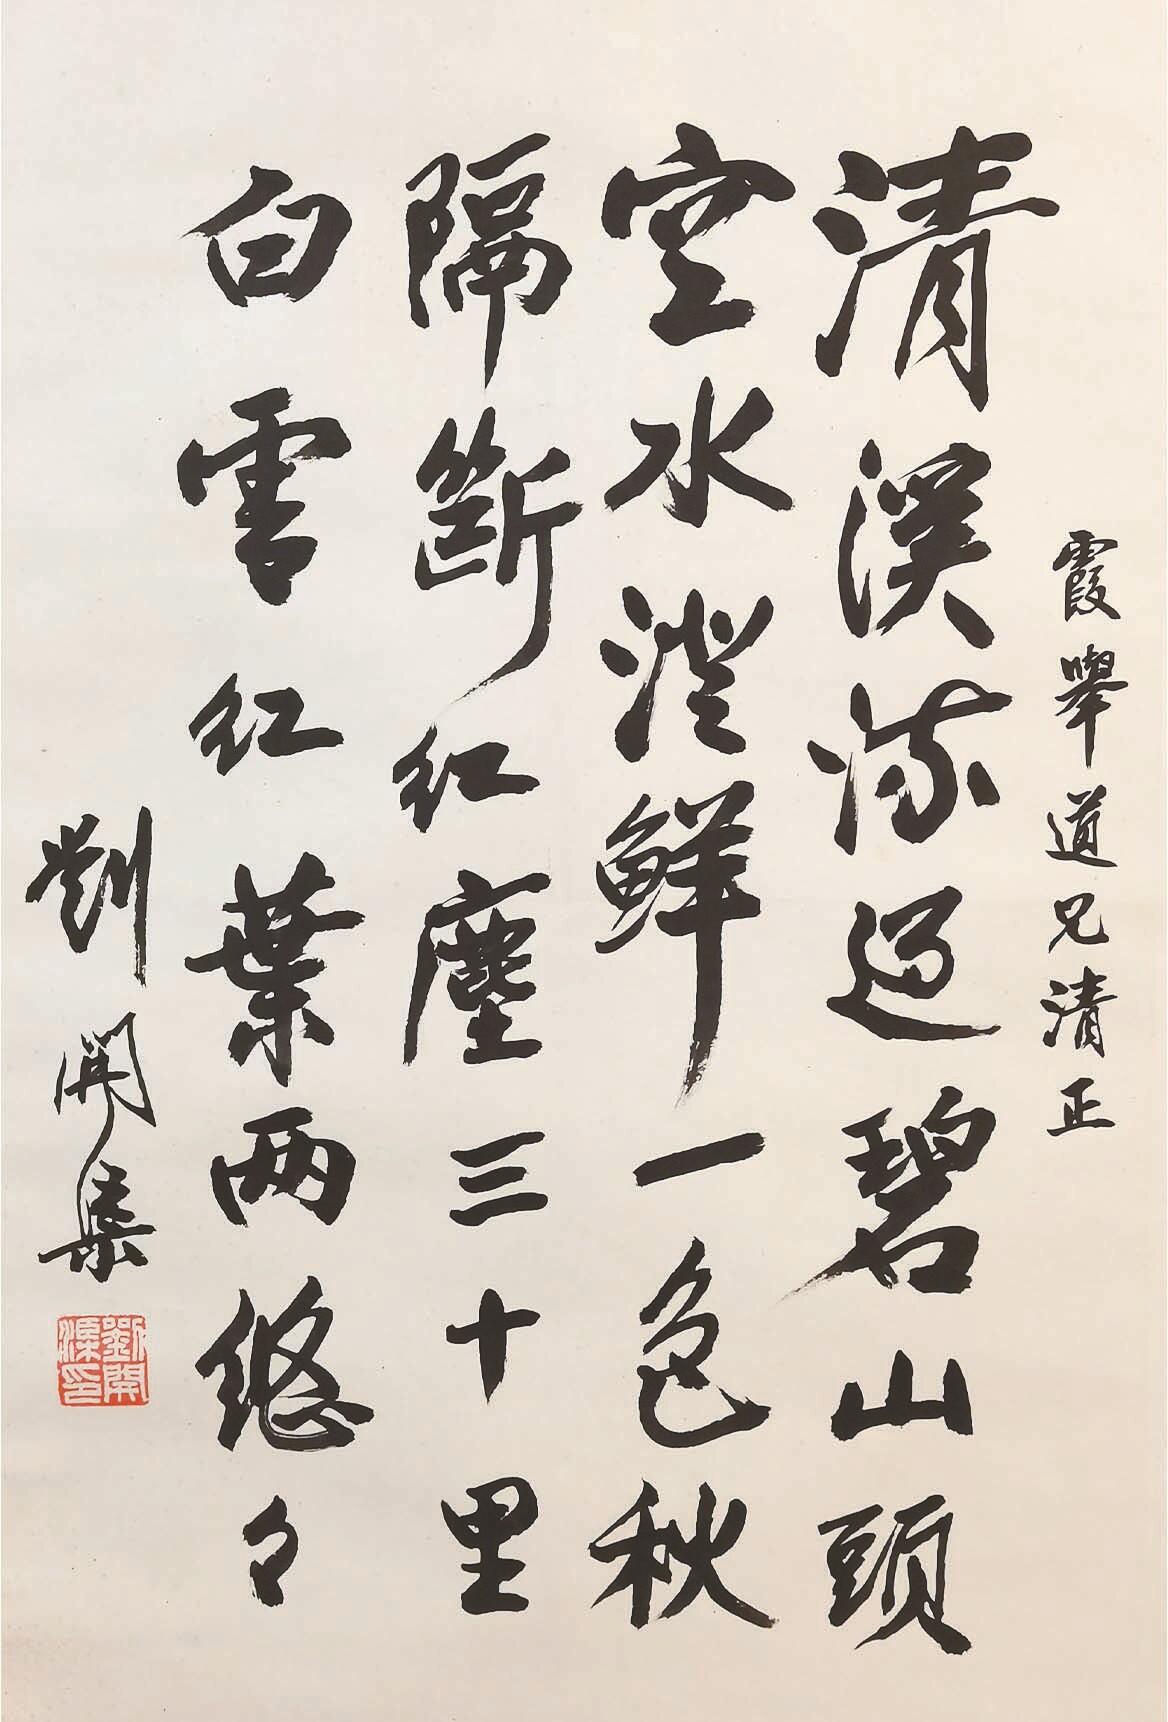 霞舉道兄清正
清溪流過碧山頭
空水澄鮮一色秋
隔斷紅塵三十里
白雲紅葉兩悠々
劉開渠
劉開渠印